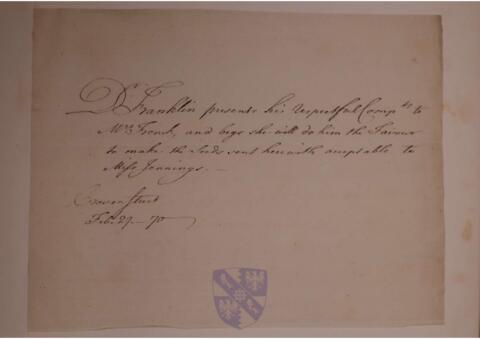 Dr Franklin presents his respectful Compts to
Mrs French, and begs she will do him the Favour
to make the Seeds sent herewith acceptable to
Miss Jennings.—
Craven Street
Feb. 27.—70